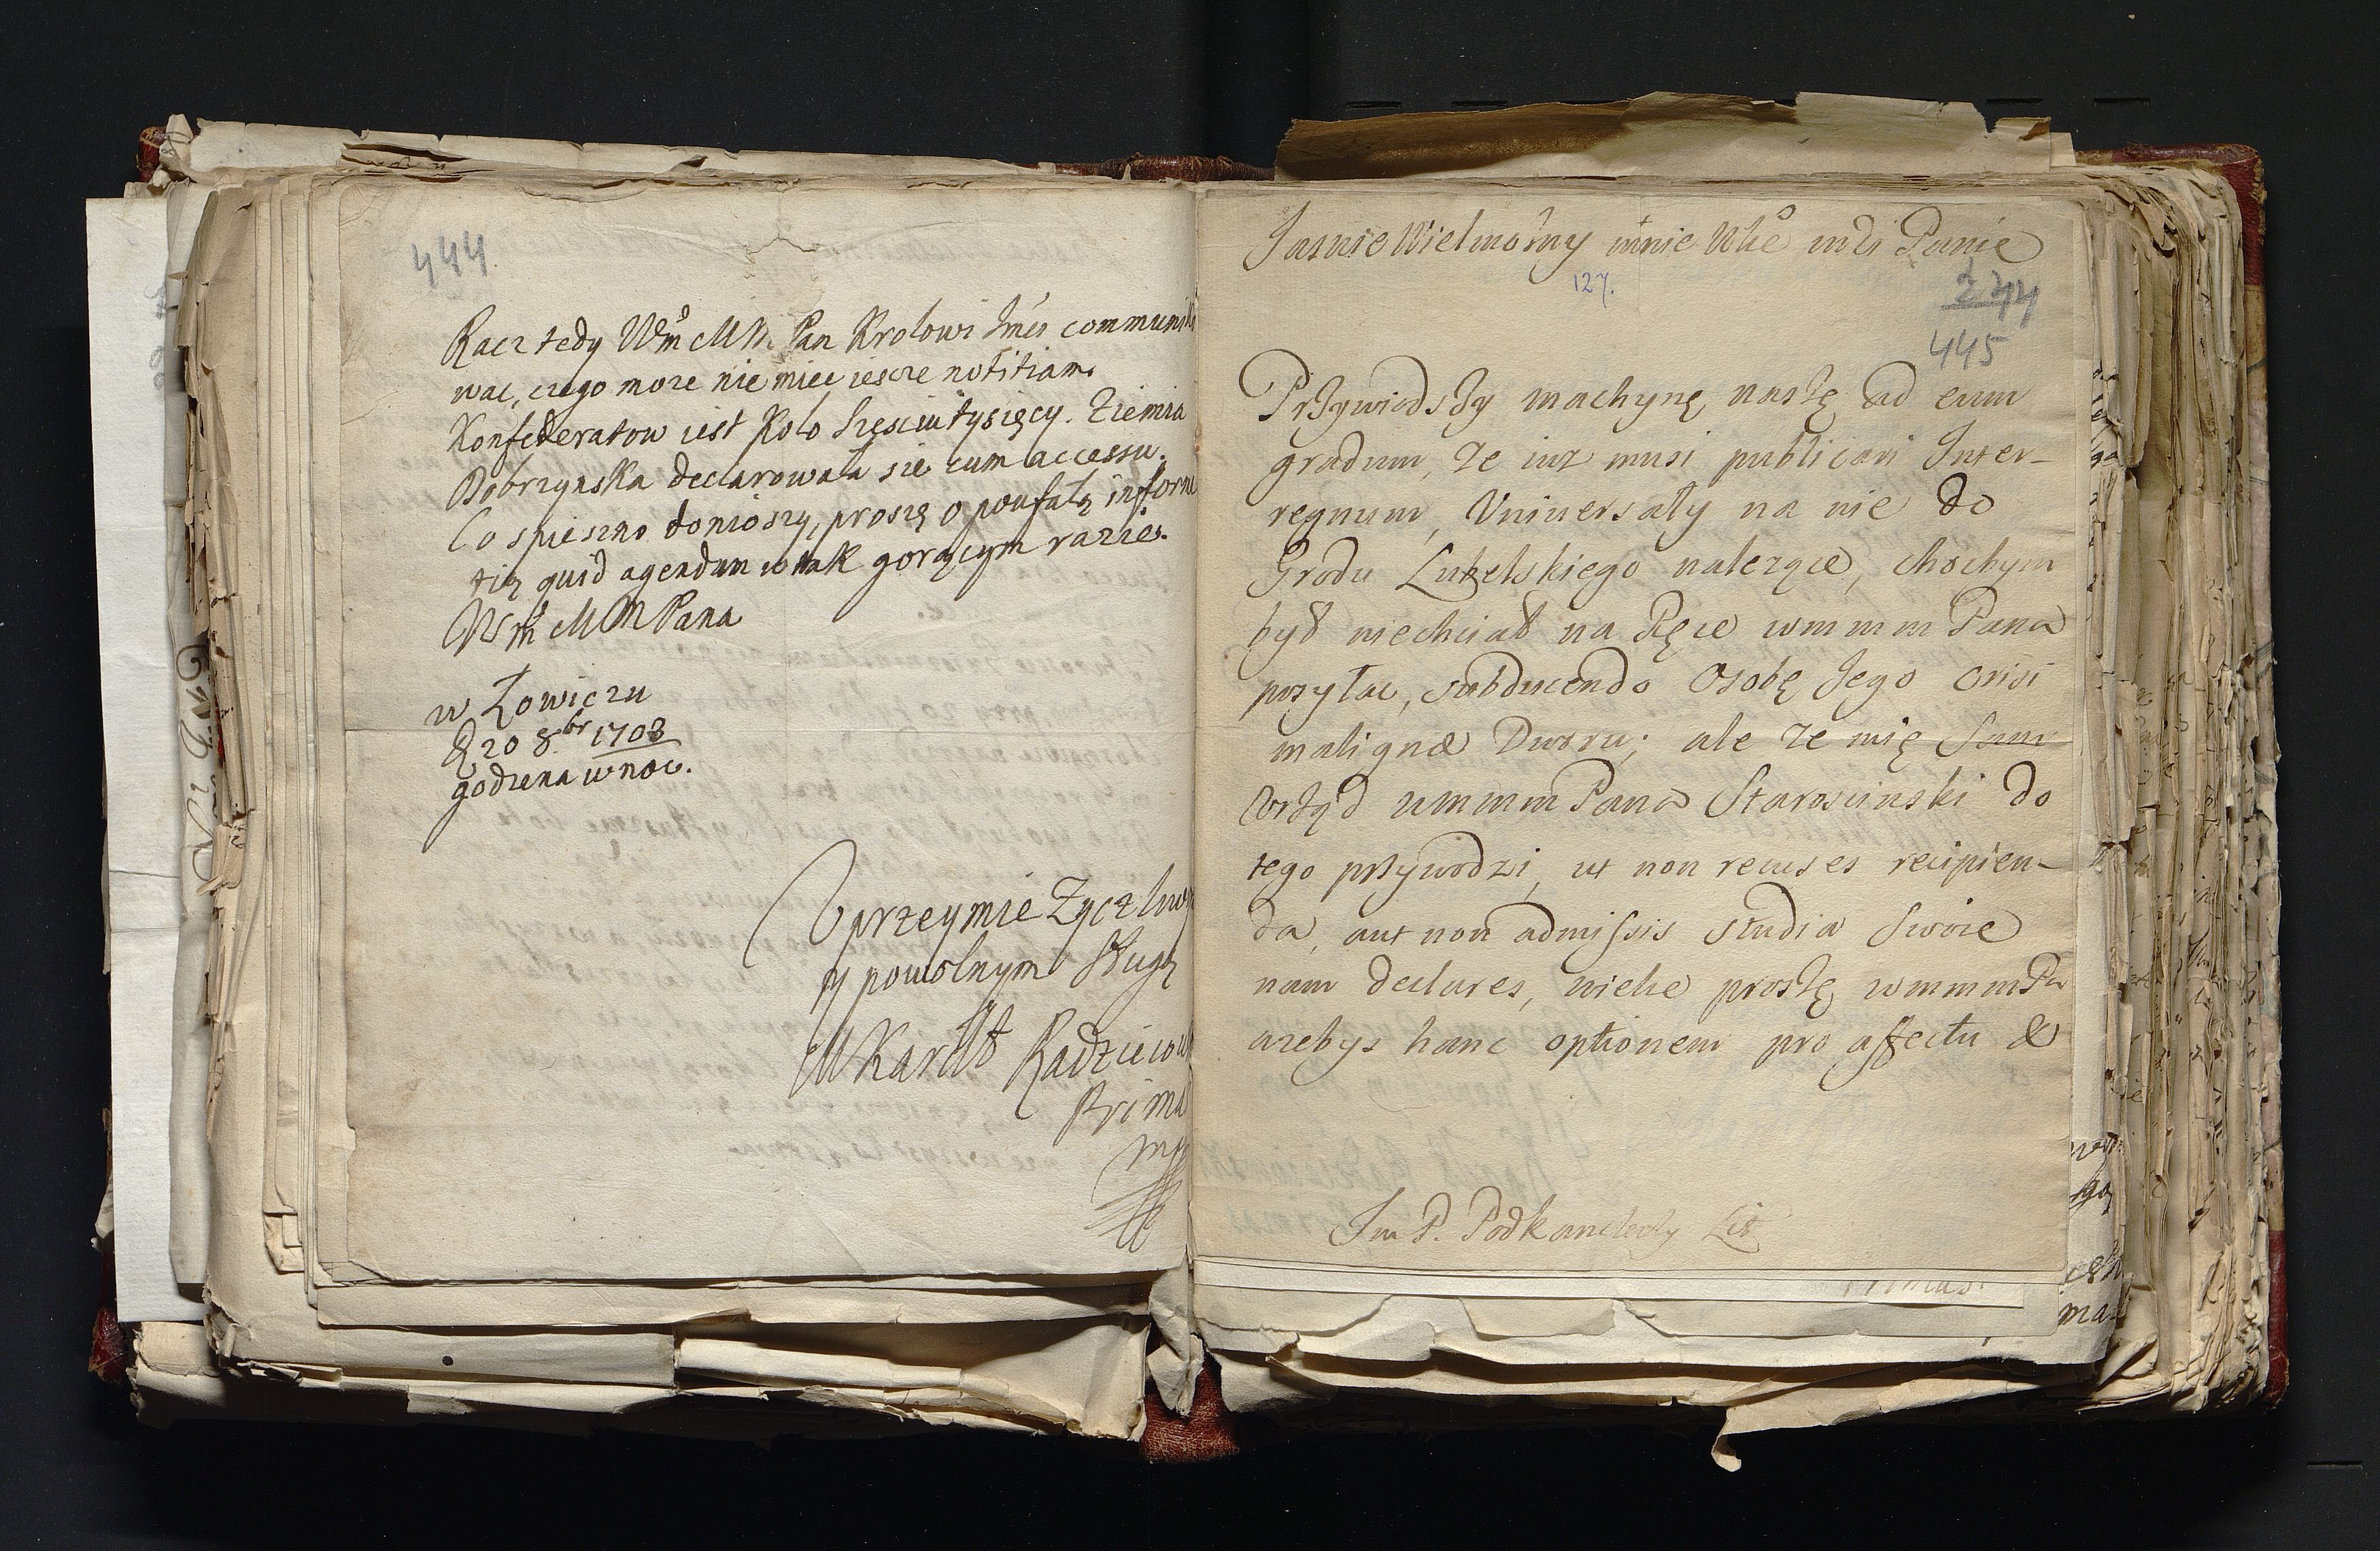 444.
Racz tedy Wm M M Pan Krolowi Jmci communiko
wac, czego może nie miec ieszcze notitiam.
Konfederatow iest Kolo sześciu tysięcy. Ziemia
Dobrzynska declarowała sie cum accessu.
Co spieszno doniosszy, proszę o poufałą informa
tią quid agendum w tak gorącym razie.
Wm M M Pana
w Łowiczu
D 20 8br 1703
godzina w noc.
Uprzeymie Zyczliwy
y powolnym Sługą
M Kardł Radzieiows
Prima
mp
Jasnie Wielmożny mnie Wlce mci Panie
127.
244
445
Przywiodszy machynę naszę ad eum
gradum, że iuz musi publicari Inter-
regnum, Vniuersały na nie do
Grodu Lubelskiego nalezące, chochym
był niechciał na Ręce wmmm Pana
posyłac, subducendo Osobę Jego crisi
malignæ Dworu; ale że mię sam
Vrząd wmmm Pana Starosciński do
tego przywodzi, ut non recuses recipien-
da, aut non admissis studia swoie
nam declares, wielce proszę wmmm Pa
azebys hanc optionem pro affectu &
Jm P. Podkanclerzy Lit
Primas.